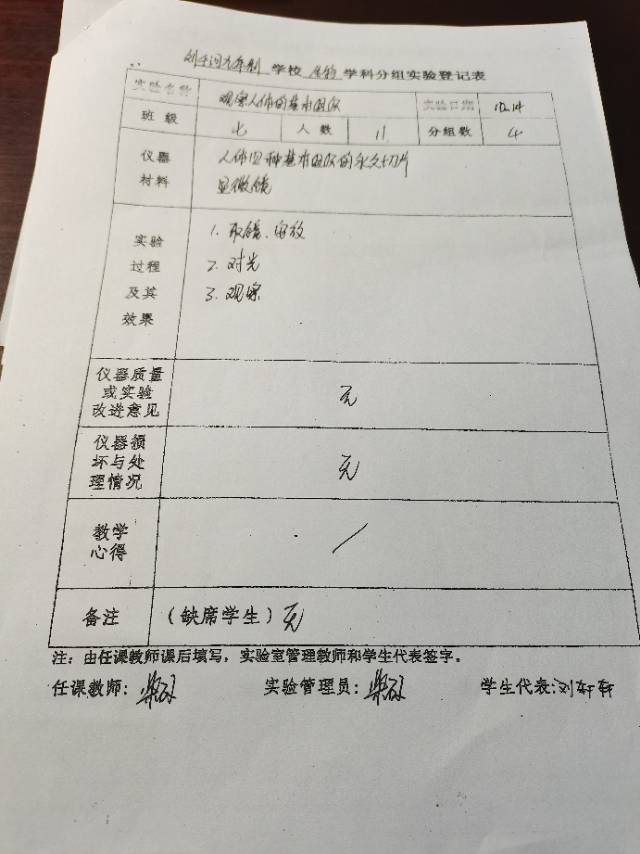 学校 生物 学科分组实验登记表
实验名称 观察人体的基本组织 实验日期 10.14
班级 七 人数 11 分组数 4
仪器 人体四种基本组织的永久切片
材料 显微镜
实验 1. 取镜、安放
过程 2. 对光
及其 3. 观察
效果
仪器质量
或实验 无
改进意见
仪器损
坏与处 无
理情况
教学 /
心得
备注 (缺席学生) 无
注：由任课教师课后填写，实验室管理教师和学生代表签字。
任课教师: 实验管理员: 学生代表: 刘轩轩